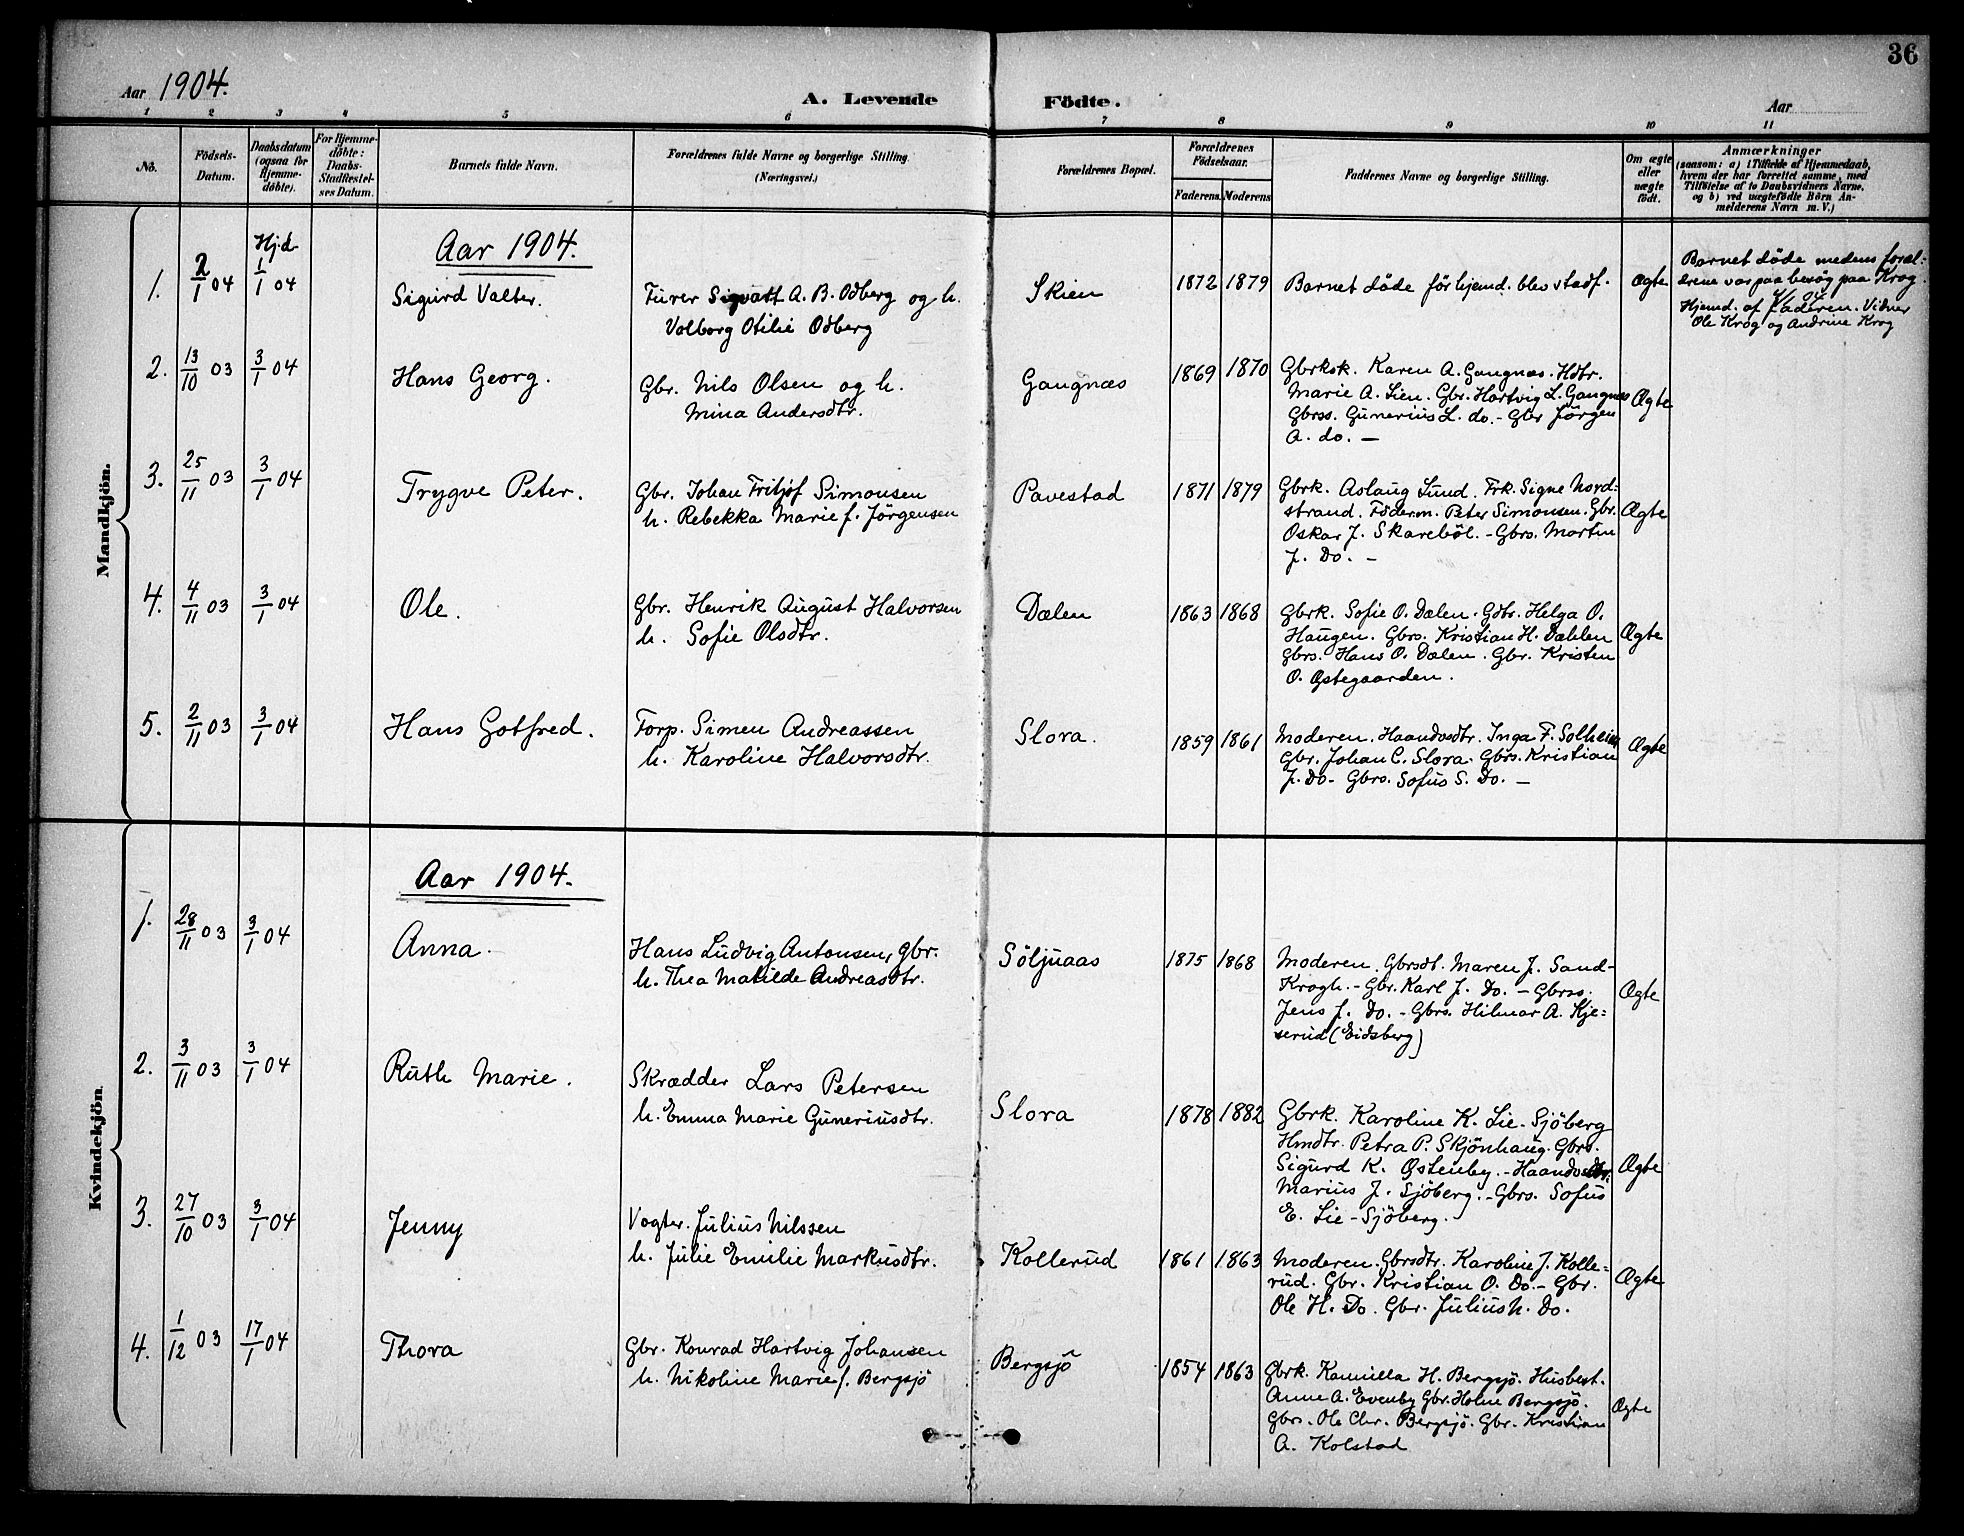 36
Aar 1904.
A. Levende Födte.
Aar
1 2 3 4 5 6 7 8 9 10 11
No.
Födsels-
Datum.
Daabsdatum
(ogsaa for
Hjemme-
döbte).
For Hjemme-
döbte:
Daabs-
Stadfæstel-
ses Datum.
Barnets fulde Navn.
Forældrenes fulde Navne og borgerlige Stilling.
(Næringsvei.)
Forældrenes Bopæl.
Forældrenes
Födselsaar.
Faderens. Moderens.
Faddernes Navne og borgerlige Stilling.
Om ægte
eller
uægte
født.
Anmærkninger
(saasom: a) i Tilfælde af Hjemmedaab,
hvem der har forrettet samme, med
Tilføielse af to Daabsvidners Navne,
og b) ved uægtefödte Börn An-
melderens Navn m. V.)
Mandkjön.
Aar 1904.
1.
2/1 04
Hjd
1/1 04
Sigurd Valter.
Furer Sigvatt A. B. Odberg og h.
Valborg Otilie Odberg
Skien
1872 1879
Barnet döde för hjemd. blev stadf.
Ægte
Barnet döde medens foræl-
drene var paa besög paa Krog
Hjemd. af Faderen. Vidner
Ole Krog og Andrine Krog
2.
13/10 03
3/1 04
Hans Georg.
Gbr. Nils Olsen og h.
Mina Andersdtr.
Gangnæs
1869 1870
Gbrksk. Karen A. Gangnæs. Hdtr.
Marie A. Lien. Gbr. Hartvig L. Gangnæs
Gbrss. Gunerius L. do. - Gbr Jörgen
A. do. —
Ægte
3.
25/11 03
3/1 04
Trygve Peter.
Gbr. Johan Fritjof Simonsen
h. Rebekka Marie f. Jörgensen
Pavestad
1871 1879
Gbrk. Aslaug Lund. Frk. Signe Nord-
strand. Föderm. Peter Simonsen. Gbr.
Oskar J. Skareböl. - Gbrs. Martin
J. Do. —
Ægte
4.
4/11 03
3/1 04
Ole.
Gbr. Henrik August Halvorsen
h. Sofie Olsdtr.
Dælen
1863 1868
Gbrk. Sofie O. Dælen. Gdtr. Helga O.
Haugen. Gbrs. Kristian H. Dæhlen
Gbrs. Hans O. Dælen. Gbr. Kristen
O. Østegaarden.
Ægte
5.
2/11 03
3/1 04
Hans Gotfred.
Torp. Simen Andreassen
h. Karoline Halvorsdtr.
Slora.
1859 1861
Moderen. Haandvdtr. Inga F. Solheim
Gbr. Johan C. Slora. Gbrs. Kristian
J. Do - Gbrs. Sofus S. Do. —
Ægte
Kvindekjön
Aar 1904.
1.
28/11 03
3/1 04
Anna.
Hans Ludvig Antonsen, Gbr.
h. Thea Matilde Andreasdtr.
Söljuaas
1875 1868
Moderen. Gbrsdt. Maren J. Sand-
Krogh. - Gbr. Karl J. Do. - Gbrss.
Jens J. Do. - Gbrs. Hilmar A. Kje-
serud (Eidsberg)
Ægte
2.
3/11 03
3/1 04
Ruth Marie.
Skrædder Lars Petersen
h. Emma Marie Guneriusdtr.
Slora
1878 1882
Gbrk. Karoline K. Lie-Sjöberg
Hmdtr. Petra P. Skjönhaug. Gbrs.
Sigurd K. Østenby. - Haandv
Marius J. Sjöberg. - Gbrs. Sofus
E. Lie-Sjöberg.
Ægte
3.
27/10 03
3/1 04
Jenny
Vogter. Julius Nilssen
h. Julie Emilie Markusdtr.
Kollerud
1861 1863
Moderen. Gbrsdtr. Karoline J. Kolle-
rud. Gbr. Kristian O. Do. - Gbr.
Ole H. Do. Gbr. Julius N. Do.
Ægte
4.
1/12 03
17/1 04
Thora
Gbr. Konrad Hartvig Johansen
h. Nikoline Marie f. Bergsjö
Bergsjö
1854 1863
Gbrk. Kamilla H. Bergsjö. Husbest.
Anne A. Evenby Gbr. Holm Bergsjö.
Gbrs. Ole Chr. Bergsjö. Gbr. Kristian
A. Kolstad
Ægte